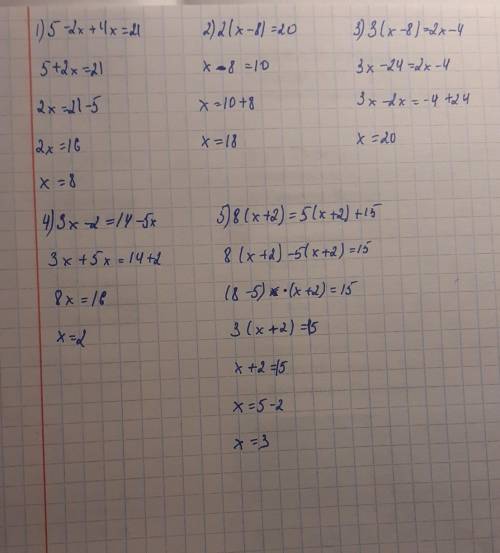 1) 5 - 2x + 4x = 21
5 + 2x = 21
2x = 21 - 5
2x = 16
x = 8
2) 2(x - 8) = 20
x - 8 = 10
x = 10 + 8
x = 18
3) 3(x - 8) = 2x - 4
3x - 24 = 2x - 4
3x - 2x = -4 + 24
x = 20
4) 3x - 2 = 14 - 5x
3x + 5x = 14 + 2
8x = 16
x = 2
5) 8(x + 2) = 5(x + 2) + 15
8(x + 2) - 5(x + 2) = 15
(8 - 5) · (x + 2) = 15
3(x + 2) = 15
x + 2 = 15
x = 5 - 2
x = 3